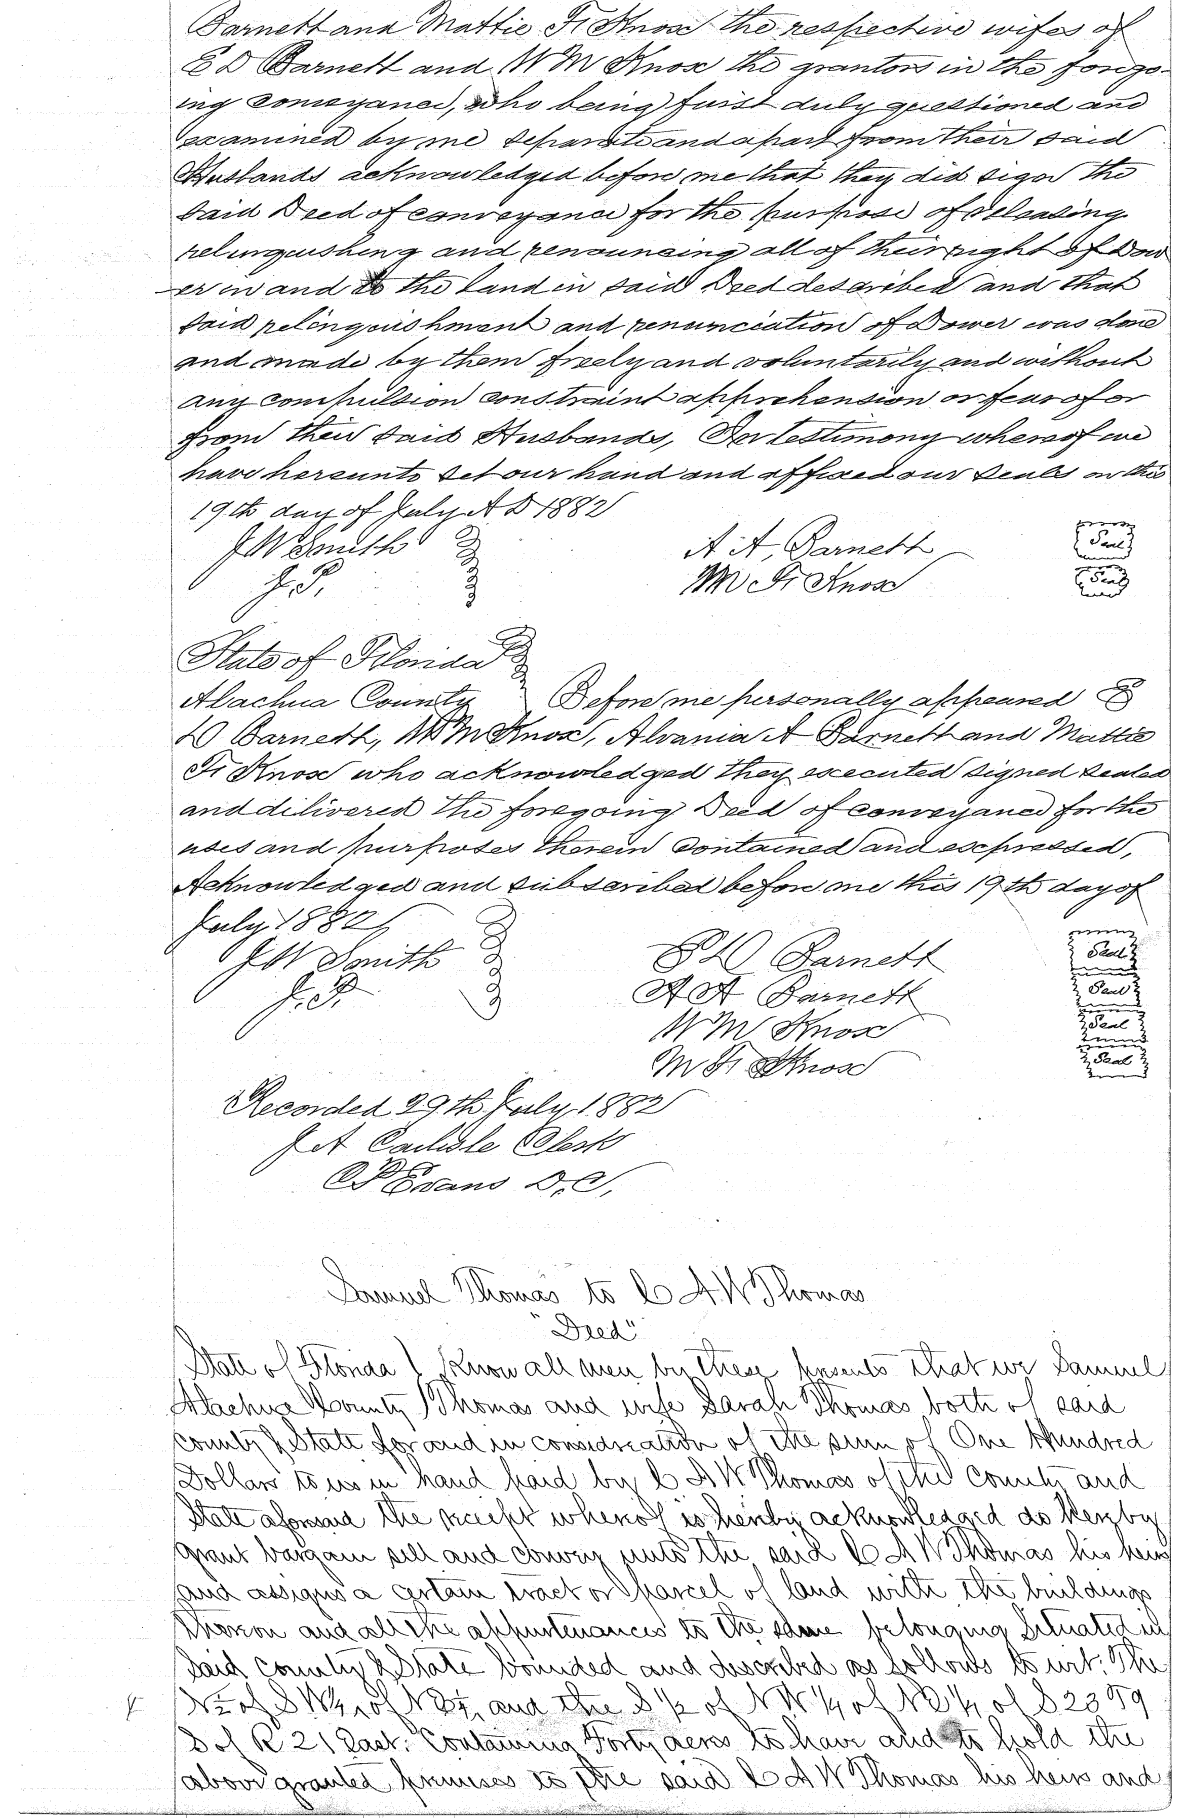 Barnett and Mattie F. Knox the respective wifes of
E D Barnett and W M Knox the grantors in the forego-
ing conveyance, who being first duly questioned and
examined by me separate and apart from their said
Husbands acknowledged before me that they did sign the
said Deed of conveyance for the purpose of releasing
relinquishing and renouncing all of their right of Dow
er in and to the land in said Deed described and that
said relinquishment and renunciation of Dower was done
and made by them freely and voluntarily and without
any compulsion constraint apprehension or fear of or
from their said Husbands, In testimony whereof we
have hereunto set our hand and affixed our seals on this
19th day of July A D 1882
J W Smith A A, Barnett Seal
J. P. M F. Knox Seal
State of Florida
Alachua County Before me personally appeared E
D Barnett, W M Knox, Alvania A Barnett and Mattie
F. Knox who acknowledged they executed signed sealed
and dilivered the foregoing Deed of conveyance for the
uses and purposes therein contained and expressed,
Acknowledged and subscribed before me this 19th day of
July 1882
J W Smith E D Barnett Seal
J. P. A A Barnett Seal
W M Knox Seal
M F. Knox Seal
Recorded 29th July 1882
J A Carlisle Clerk
Evans D. C.
Samuel Thomas to C A W Thomas
"Deed"
State of Florida Know all men by these presents that we Samuel
Alachua County Thomas and wife Sarah Thomas both of said
county & State for and in consideration of the sum of One Hundred
Dollars to us in hand paid by C A W Thomas of the county and
State aforesaid the receipt whereof is hereby acknowledged do hereby
grant bargain sell and convey unto the said C A W Thomas his heirs
and assigns a certain tract or parcel of land with the buildings
thereon and all the appurtenances to the same belonging situated in
said county & State bounded and described as follows to wit: The
N½ of S W¼ of N E¼, and the S ½ of N W ¼ of N E ¼ of S 23 T 9
S of R 21 East. Containing Forty acres to have and to hold the
above granted premises to the said C A W Thomas his heirs and